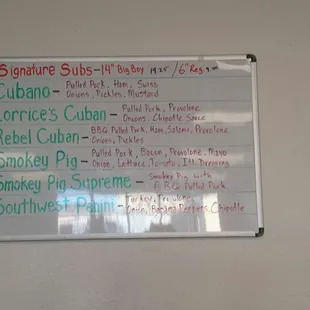 Signature Subs - 14" Big Boy 19.25 / 6" Reg.
Cubano - Pulled Pork, Ham, Swiss
Onions, Pickles, Mustard
Lorrice's Cuban - Pulled Pork, Provolone
Onions, Chipotle Sauce
Rebel Cuban - BBQ Pulled Pork, Ham, Salami, Provolone
Onions, Pickles
Smokey Pig - Pulled Pork, Bacon, Provolone, Mayo
Onion, Lettuce, Tomato, Itl Dressing
Smokey Pig Supreme - Smokey Pig with
BBQ Pulled Pork
Southwest Panini - Turkey, Provolone
Onion, Banana Peppers, Chipotle